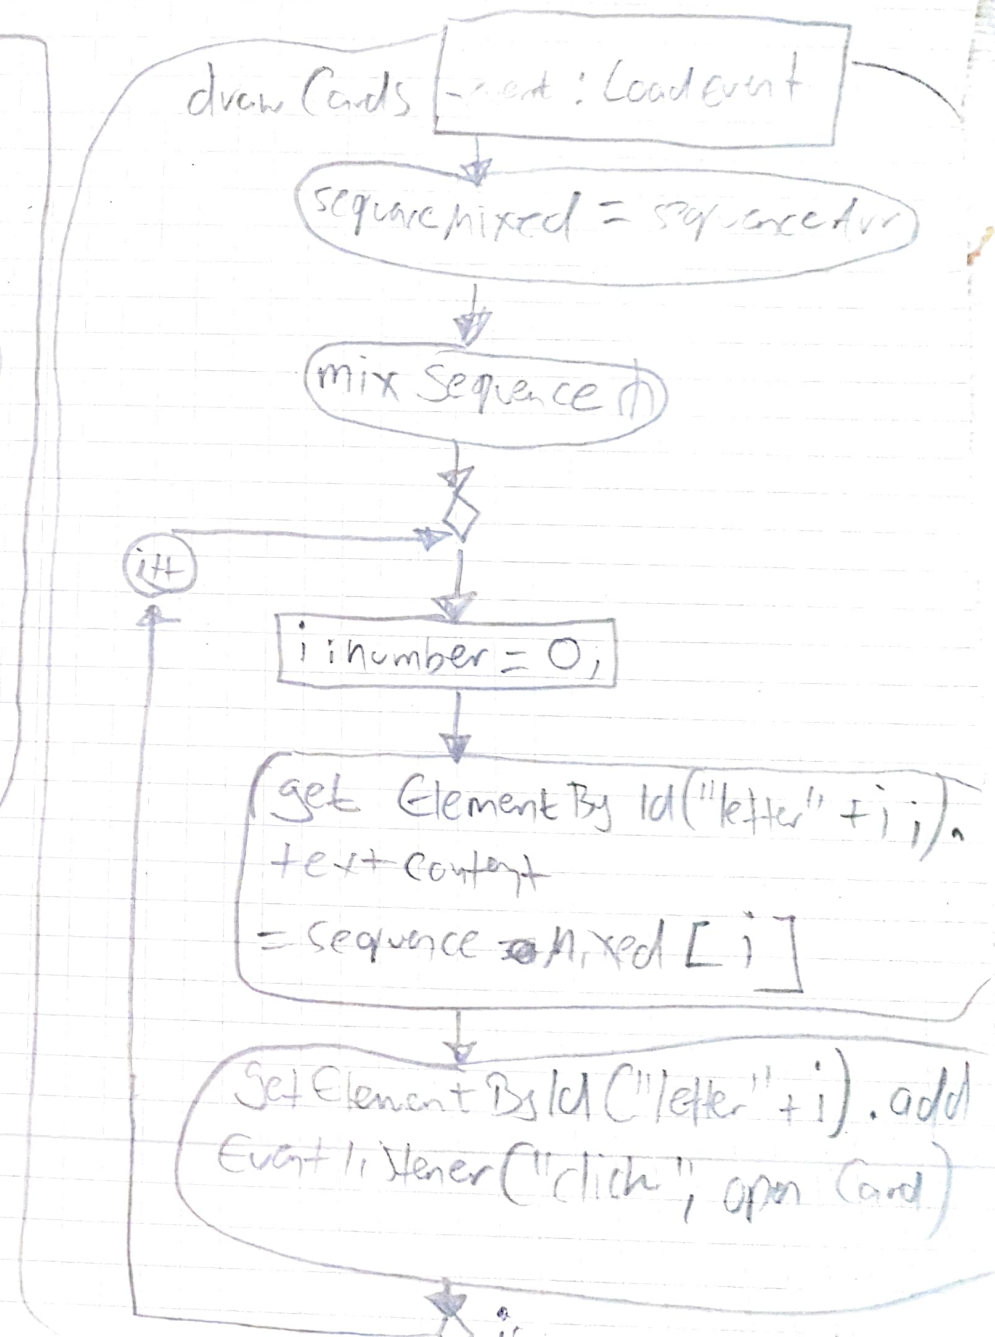 draw Cards
: LoadEvent
sequencemixed = sequenceArr
mix Sequence ()
i++
i : number = 0;
get Element By Id ("letter" + i ;).
text content
= sequence Mixed [ i ]
get Element By Id ("letter" + i) . add
Event listener ("click", open Card)